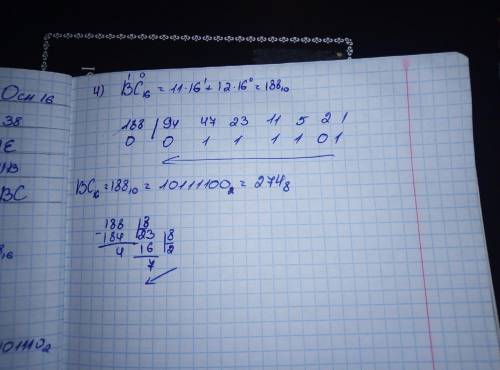 Осн 16
38
1E
BC
10110₂
4) BC₁₆ = 11·16¹ + 12·16⁰ = 188₁₀
188 | 94 47 23 11 5 2 1
0 0 1 1 1 1 0 1
BC₁₆ = 188₁₀ = 10111100₂ = 274₈
188 | 8
-184 | 23 | 8
4 16 2
7